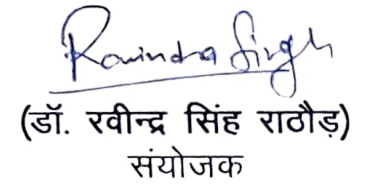 Ravindra Singh
(डॉ. रवीन्द्र सिंह राठौड़)
संयोजक